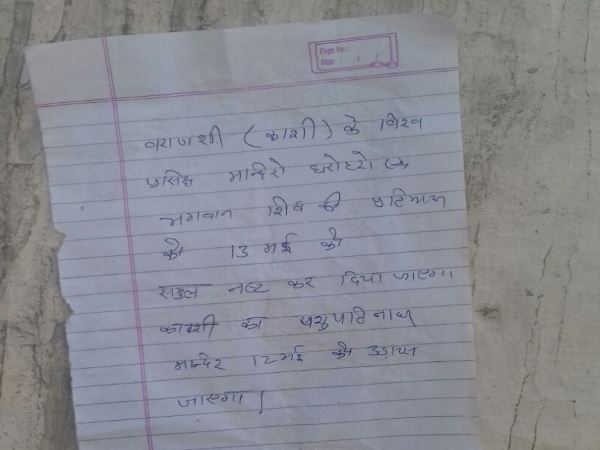 Page No.:
Date :
वाराणशी (काशी) के विश्व
प्रसिद्ध मन्दिरो धरोहरो
भगवान शिव की
को 13 मई को
नष्ट कर दिया जाएगा।
काशी का पशुपातिनाथ
मान्देर 12 मई को उडाया
जाएगा।